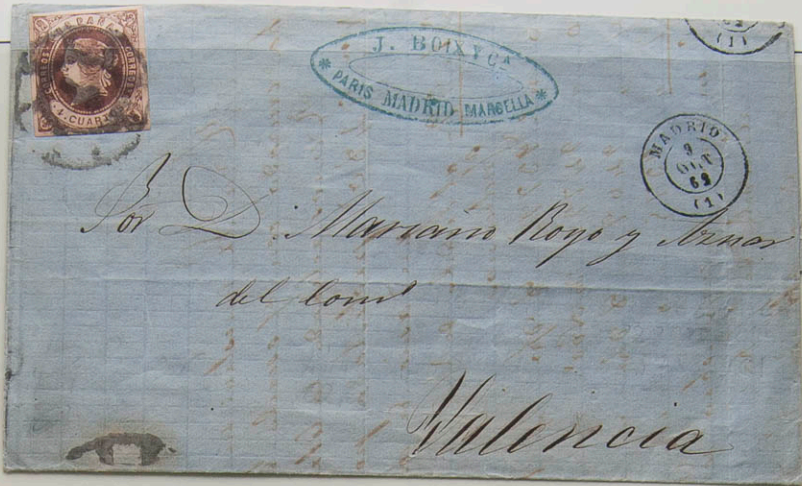 ESPAÑA
CORREOS
4 CUARTOS
J. BOIX Y Cª
* PARIS MADRID MARSELLA *
(1)
MADRID
9
OCT
62
(1)
Sor D. Mariano Royo y Aznar
del Comº
Valencia